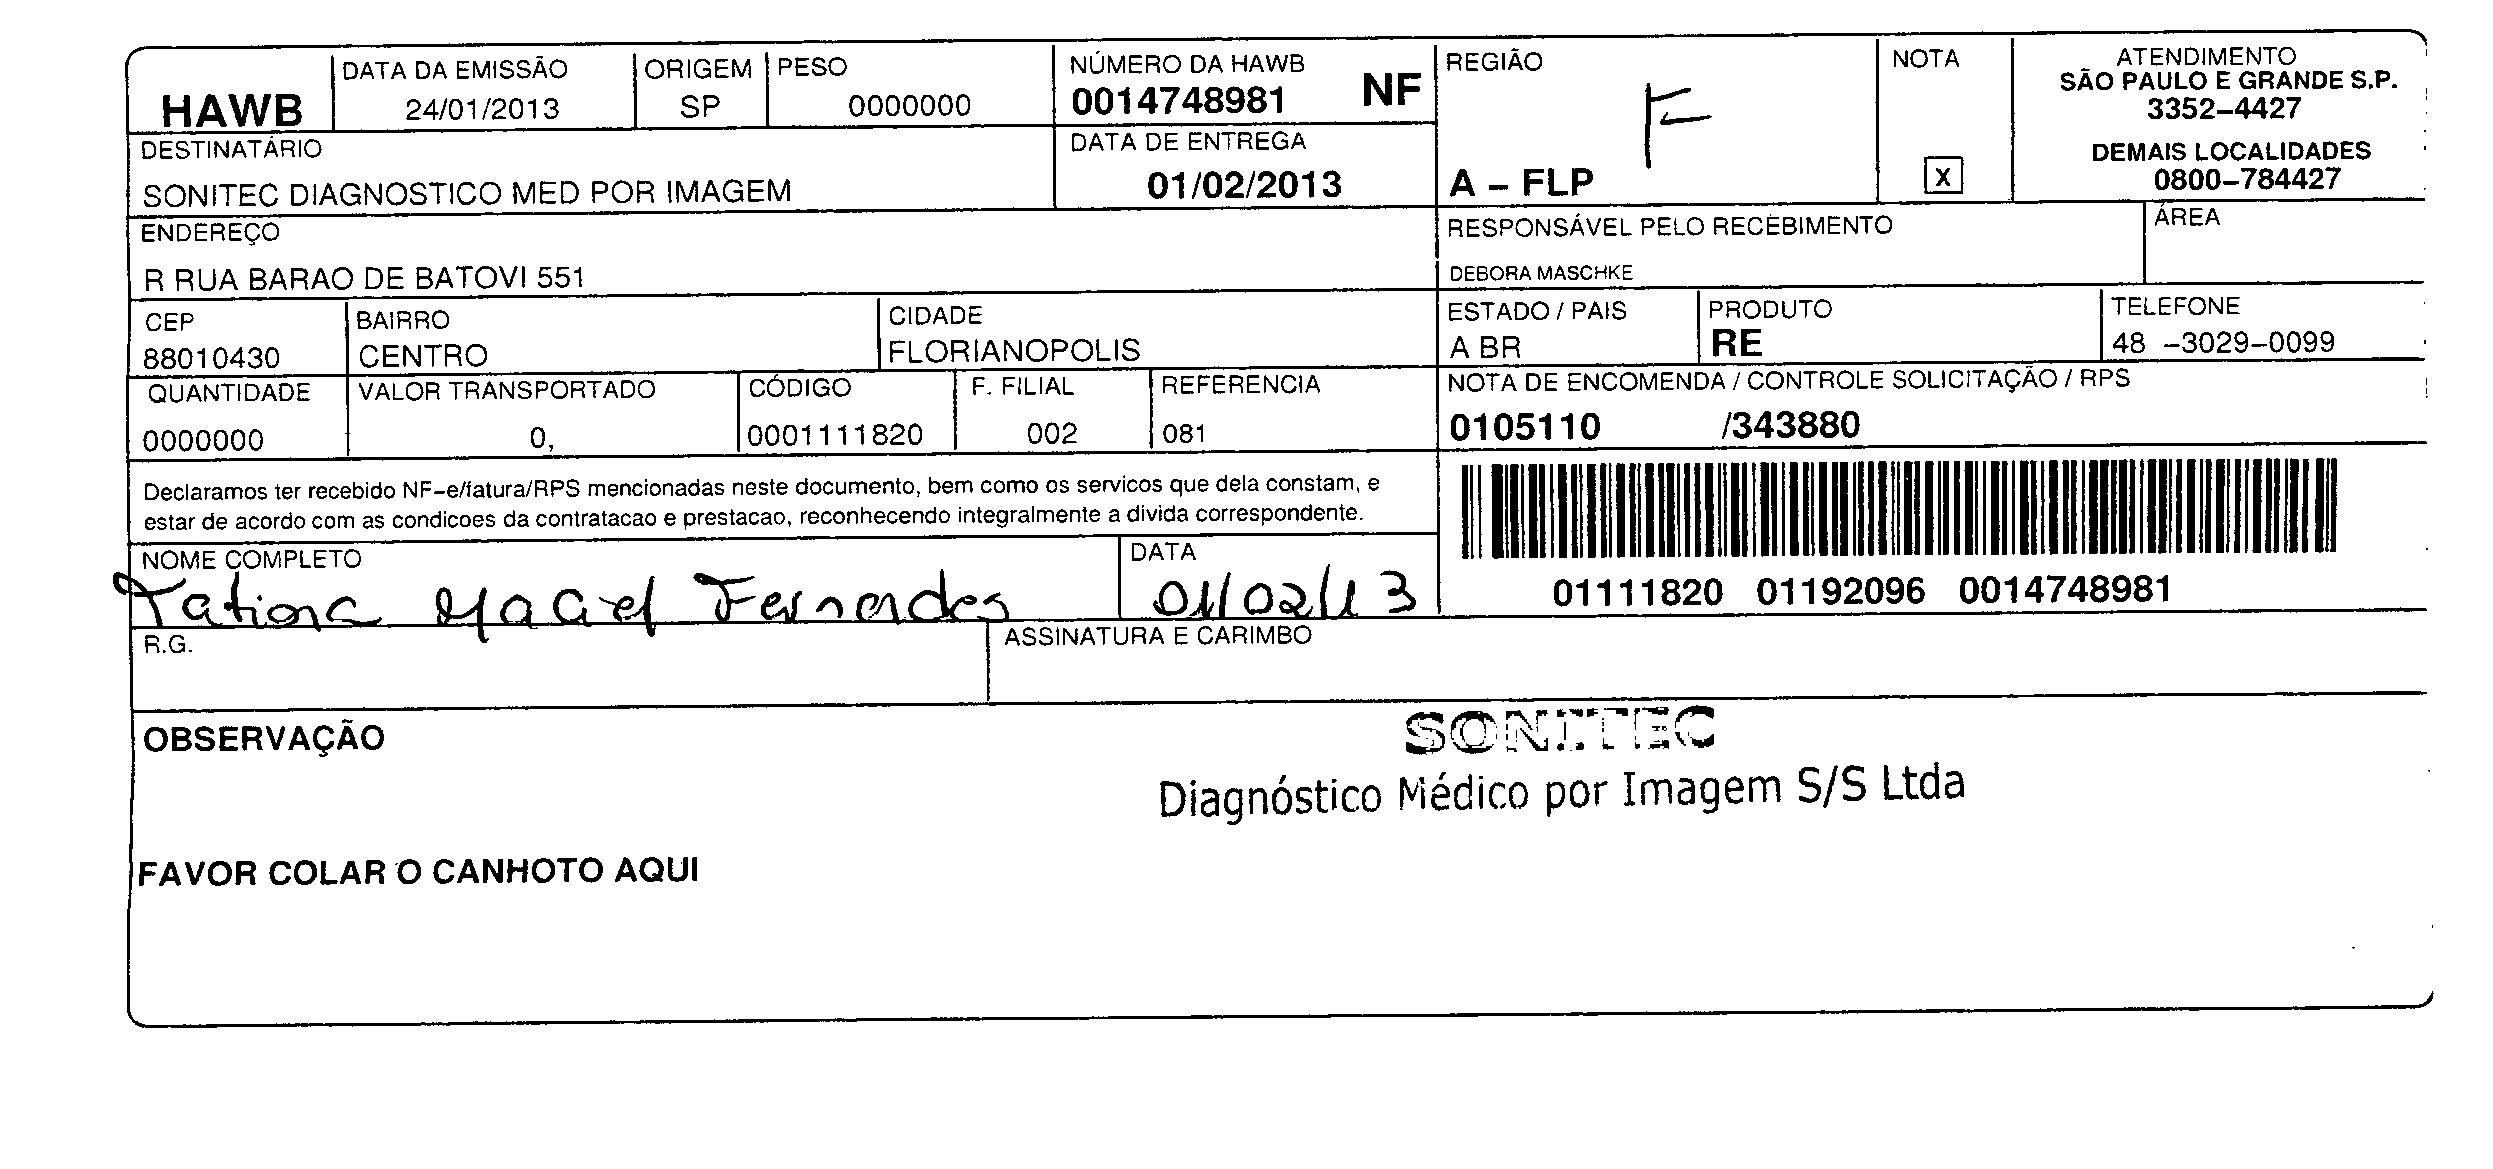 HAWB
DATA DA EMISSÃO
24/01/2013
ORIGEM
SP
PESO
0000000
NÚMERO DA HAWB
0014748981 NF
REGIÃO
F
A – FLP
NOTA
X
ATENDIMENTO
SÃO PAULO E GRANDE S.P.
3352–4427
DEMAIS LOCALIDADES
0800–784427
DESTINATÁRIO
SONITEC DIAGNOSTICO MED POR IMAGEM
DATA DE ENTREGA
01/02/2013
ENDEREÇO
R RUA BARAO DE BATOVI 551
RESPONSÁVEL PELO RECEBIMENTO
DEBORA MASCHKE
ÁREA
CEP
88010430
BAIRRO
CENTRO
CIDADE
FLORIANOPOLIS
ESTADO / PAIS
A BR
PRODUTO
RE
TELEFONE
48 –3029–0099
QUANTIDADE
0000000
VALOR TRANSPORTADO
0,
CÓDIGO
0001111820
F. FILIAL
002
REFERENCIA
081
NOTA DE ENCOMENDA / CONTROLE SOLICITAÇÃO / RPS
0105110 /343880
Declaramos ter recebido NF–e/fatura/RPS mencionadas neste documento, bem como os servicos que dela constam, e
estar de acordo com as condicoes da contratacao e prestacao, reconhecendo integralmente a divida correspondente.
01111820 01192096 0014748981
NOME COMPLETO
Tatiana Fernandes
DATA
01/02/13
R.G.
ASSINATURA E CARIMBO
OBSERVAÇÃO
SONITEC
Diagnóstico Médico por Imagem S/S Ltda
FAVOR COLAR O CANHOTO AQUI